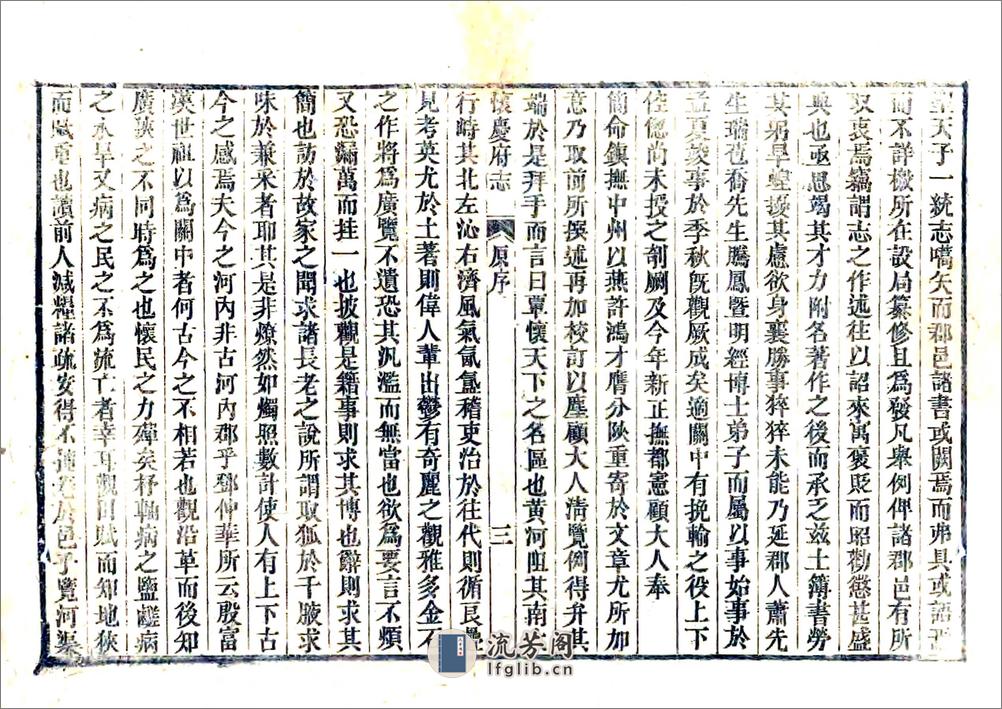 天子一統志嚆矢而郡邑諸書或闕焉而弗具或語焉
而不詳檄所在設局纂修且爲發凡舉例俾諸郡邑有所
取衷焉竊謂志之作述往以詔來寓褒貶而昭勸懲甚盛
典也亟思竭其才力附名著作之後而承乏兹土簿書勞
其形旱蝗擾其慮欲身襄勝事猝猝未能乃延郡人蕭先
生瑞苞喬先生騰鳳暨明經博士弟子而屬以事始事於
孟夏竣事於季秋旣觀厥成矣適關中有挽輸之役上下
倥傯尚未授之剞劂及今年新正撫都憲顧大人奉
簡命鎮撫中州以燕許鴻才膺分陝重寄於文章尤所加
意乃取前所撰述再加校訂以塵顧大人淸覽例得弁其
端於是拜手而言曰覃懷天下之名區也黄河阻其南太
懷慶府志 原序 三
行峙其北左沁右濟風氣氤氳稽吏治於往代則循良疊
見考英尤於土著則偉人輩出鬱有奇麗之觀雅多金石
之作將爲廣覽不遺恐其汎濫而無當也欲爲要言不煩
又恐漏萬而挂一也披觀是籍事則求其博也辭則求其
簡也訪於故家之聞求諸長老之說所謂取狐於千腋求
味於兼采者耶其是非燎然如燭照數計使人有上下古
今之感焉夫今之河内非古河内郡乎鄧仲華所云殷富
漢世祖以爲關中者何古今之不相若也觀沿革而後知
廣狹之不同時爲之也懷民之力殫矣杼軸病之鹽鹺病
之水旱又病之民之不爲流亡者幸耳觀田賦而知地狹
而賦重也讀前人減糧諸疏安得不掩卷於邑乎覽河渠